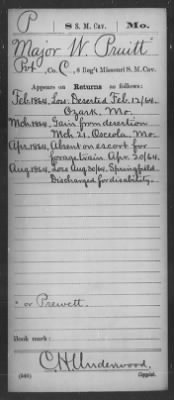 P | 8 S. M. Cav. | Mo.
Major W. Pruitt*
Pvt., Co. C, 8 Reg't Missouri S. M. Cav.
Appears on Returns as follows:
Feb. 1864, Loss. Deserted Feb. 12/64.
Ozark, Mo.
Mch. 1864, Gain from desertion
Mch 21, Osceola, Mo.
Apr. 1864, Absent on escort for
forage train Apr. 20/64.
Aug. 1864, Loss Aug 30/64. Springfield
Discharged for disability.
* or Prewett.
Book mark:
C. H. Underwood,
(546) Copyist.